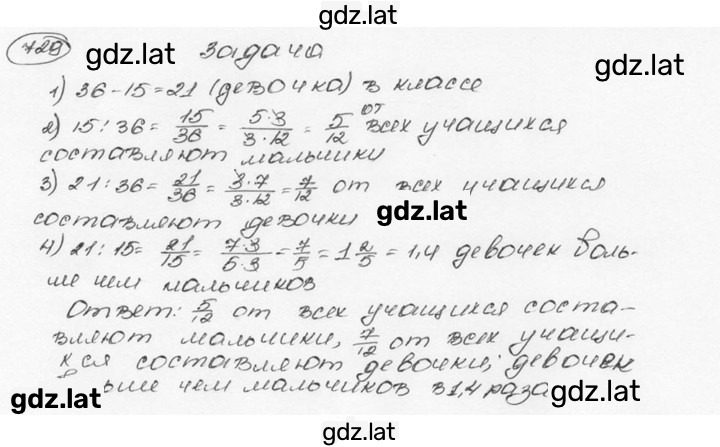 gdz.lat
729 gdz.lat Задача gdz.lat
1) 36-15=21 (девочка) в классе
2) 15:36= 15/36 = 5·3/3·12 = 5/12 от всех учащихся
составляют мальчики
3) 21:36= 21/36 = 3·7/3·12 = 7/12 от всех учащихся
составляют девочки gdz.lat
4) 21:15= 21/15 = 7·3/5·3 = 7/5 = 1 2/5 = 1,4 девочек боль-
ше чем мальчиков
Ответ: 5/12 от всех учащихся соста-
вляют мальчики, 7/12 от всех учащи-
хся составляют девочки; девочек
ьше чем мальчиков в 1,4 раза gdz.lat
gdz.lat
gdz.lat